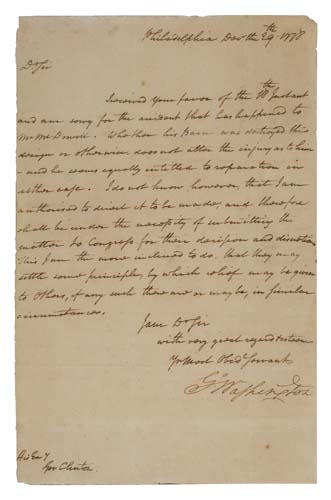 Philadelphia Decr the 29th 1778
Dr Sir
I received Your favor of the 18th Instant
and am sorry for the accident that has happened to
Mr McDonell. Whether his Barn was destroyed thro
design or otherwise does not alter the injury as to him
– and he seems equally intitled to reparation in
either case. I do not know however, that I am
authorised to direct it to be made, and therefore
shall be under the necessity of submitting the
matter to Congress for their decision and direction
This I am the more inclined to do, that they may
settle some principle, by which relief may be given
to Others, if any such there are or may be, in similar
circumstances.
I am Dr Sir
with very great regard & esteem
Yr Most Obedt Servant
Go Washington
His Exy
Gov Clinton